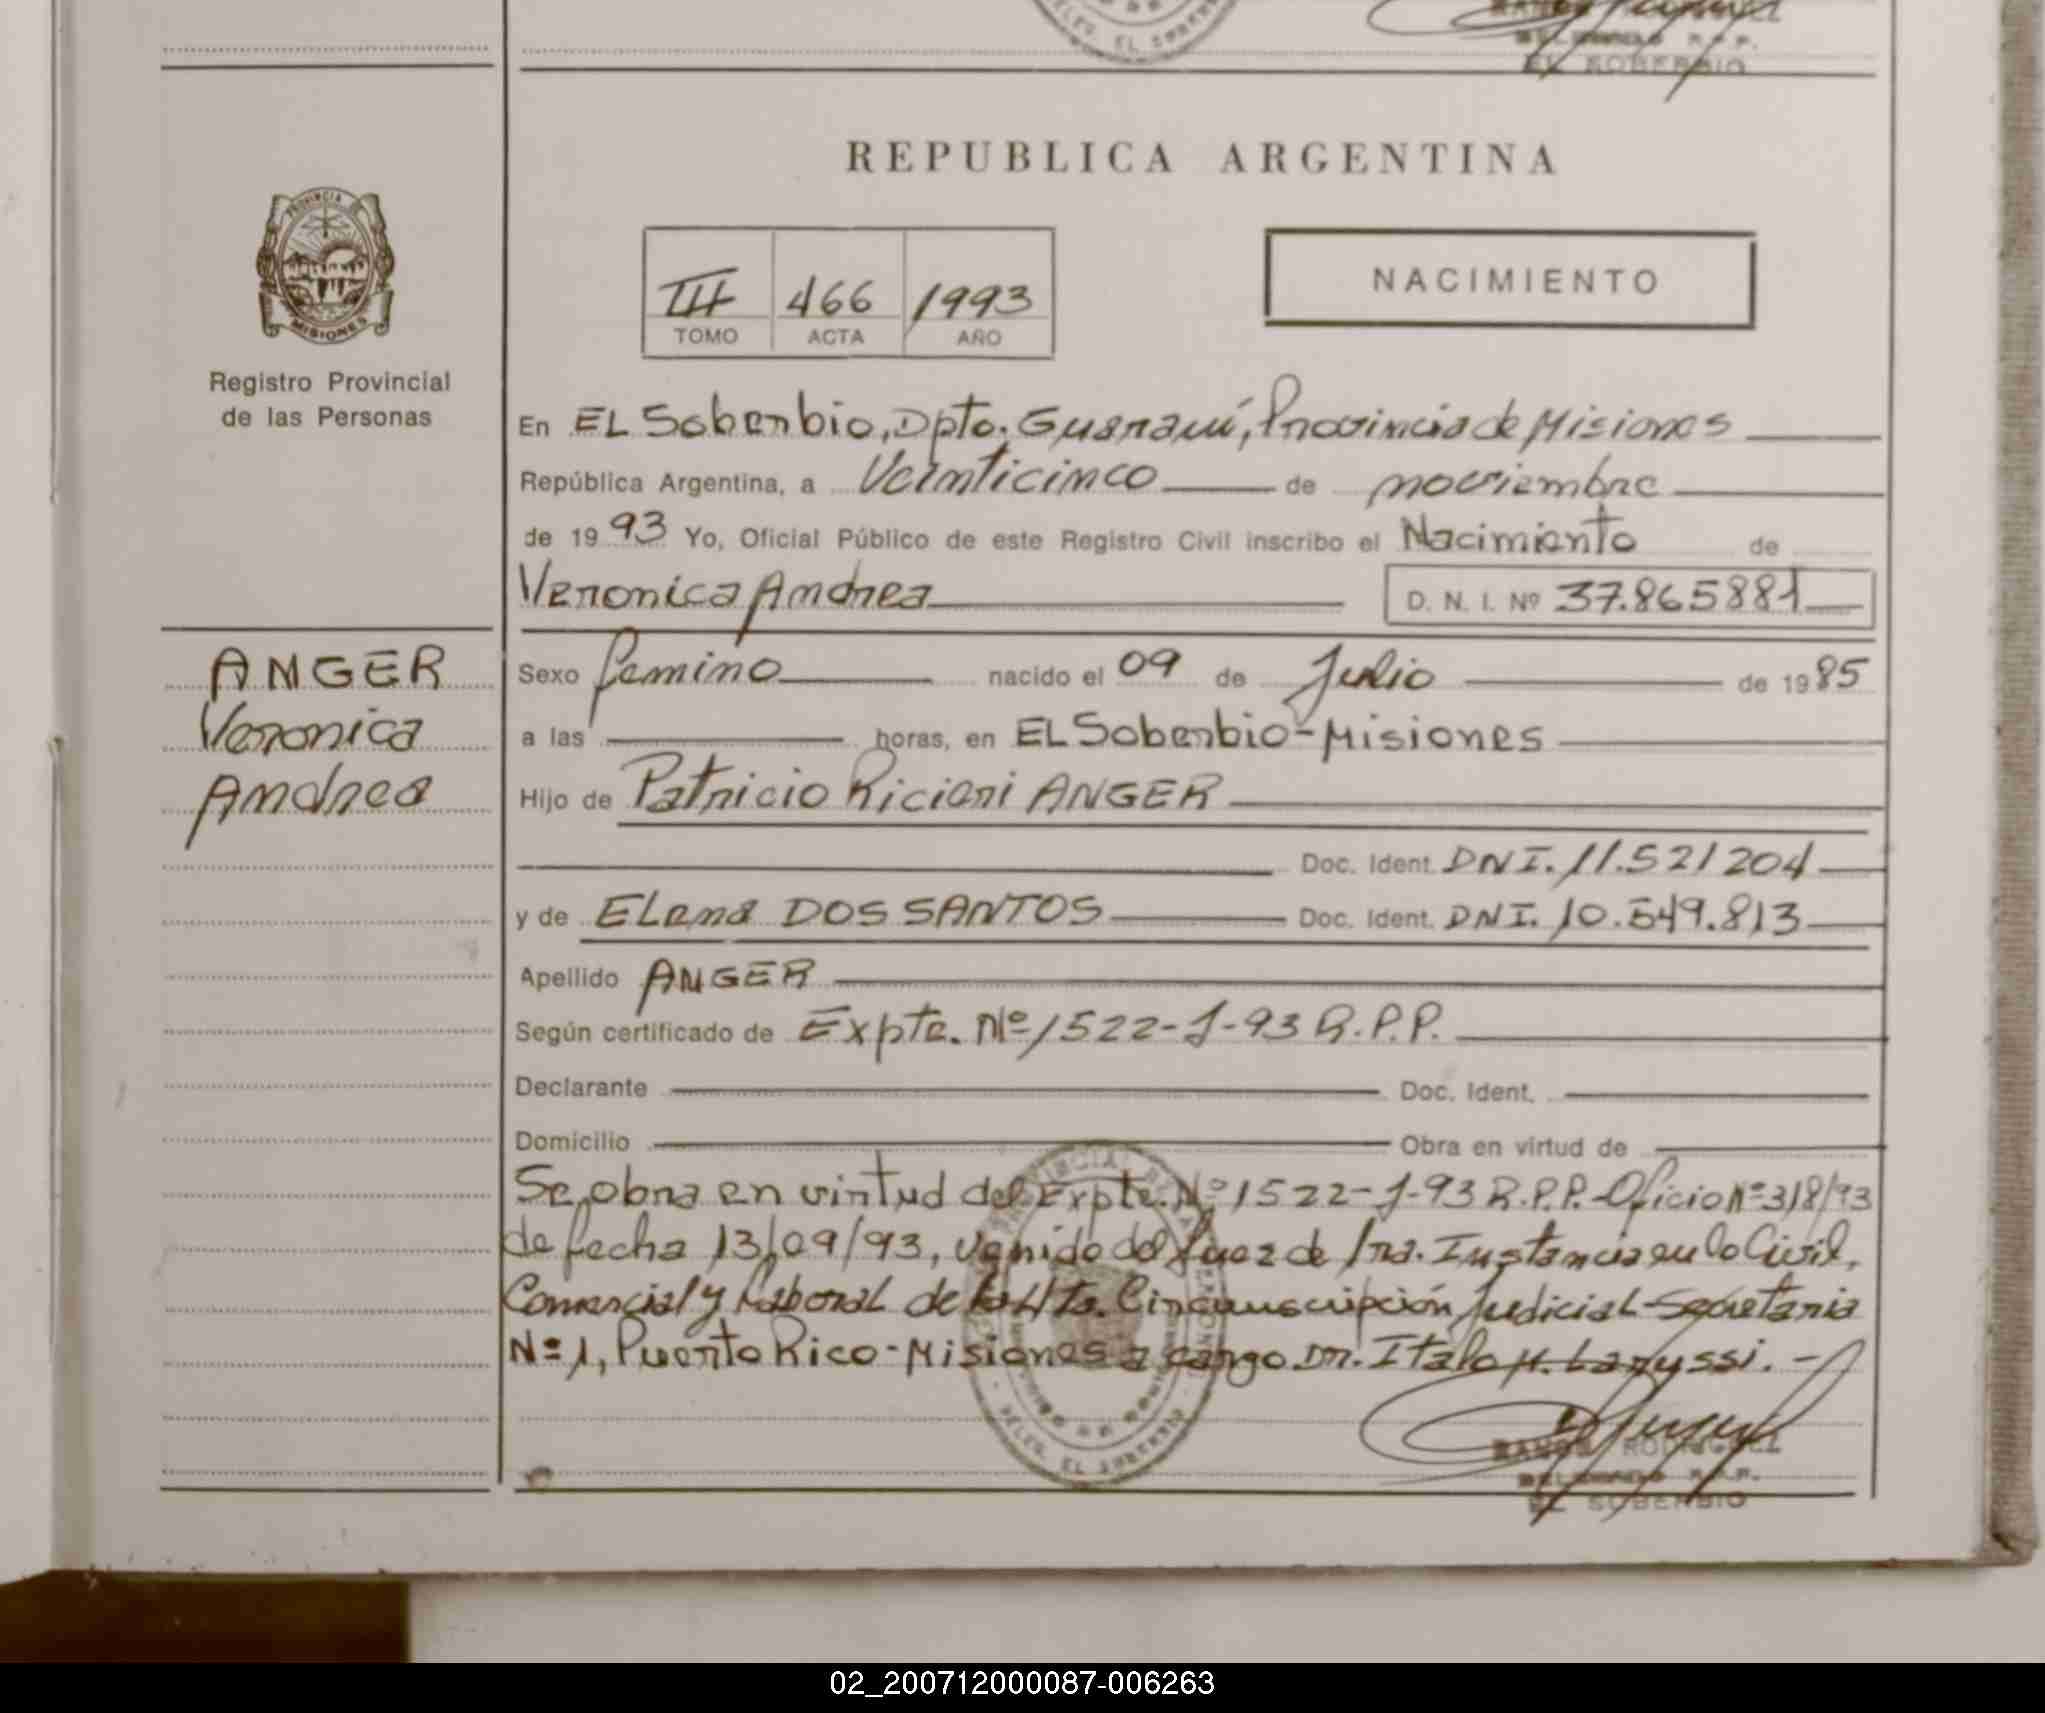 EL SOBERBIO
REPUBLICA ARGENTINA
PROVINCIA DE
MISIONES
Registro Provincial
de las Personas
III 466 1993
TOMO ACTA AÑO
NACIMIENTO
En EL Soberbio, Dpto. Guaraní, Provincia de Misiones
República Argentina, a Veinticinco de noviembre
de 1993 Yo, Oficial Público de este Registro Civil inscribo el Nacimiento de
Veronica Andrea D. N. I. Nº 37.865881
ANGER
Veronica
Andrea
Sexo femino nacido el 09 de Julio de 1985
a las horas, en EL Soberbio-Misiones
Hijo de Patricio Ricieri ANGER
Doc. Ident. DNI. 11.521204
y de ELena DOS SANTOS Doc. Ident. DNI. 10.549.813
Apellido ANGER
Según certificado de Expte. Nº 1522-J-93 R.P.P.
Declarante Doc. Ident.
Domicilio Obra en virtud de
Se obra en virtud del Expte. Nº 1522-J-93 R.P.P.-Oficio Nº 318/93
de fecha 13/09/93, venido del Juez de 1ra. Instancia en lo Civil,
Comercial y Laboral de la 4ta. Circunscripción Judicial-Secretaria
Nº 1, Puerto Rico-Misiones a cargo Dr. Italo H. Laryssi.-
RAMON RODRIGUEZ
DELEGADO R.P.P.
EL SOBERBIO
02_200712000087-006263